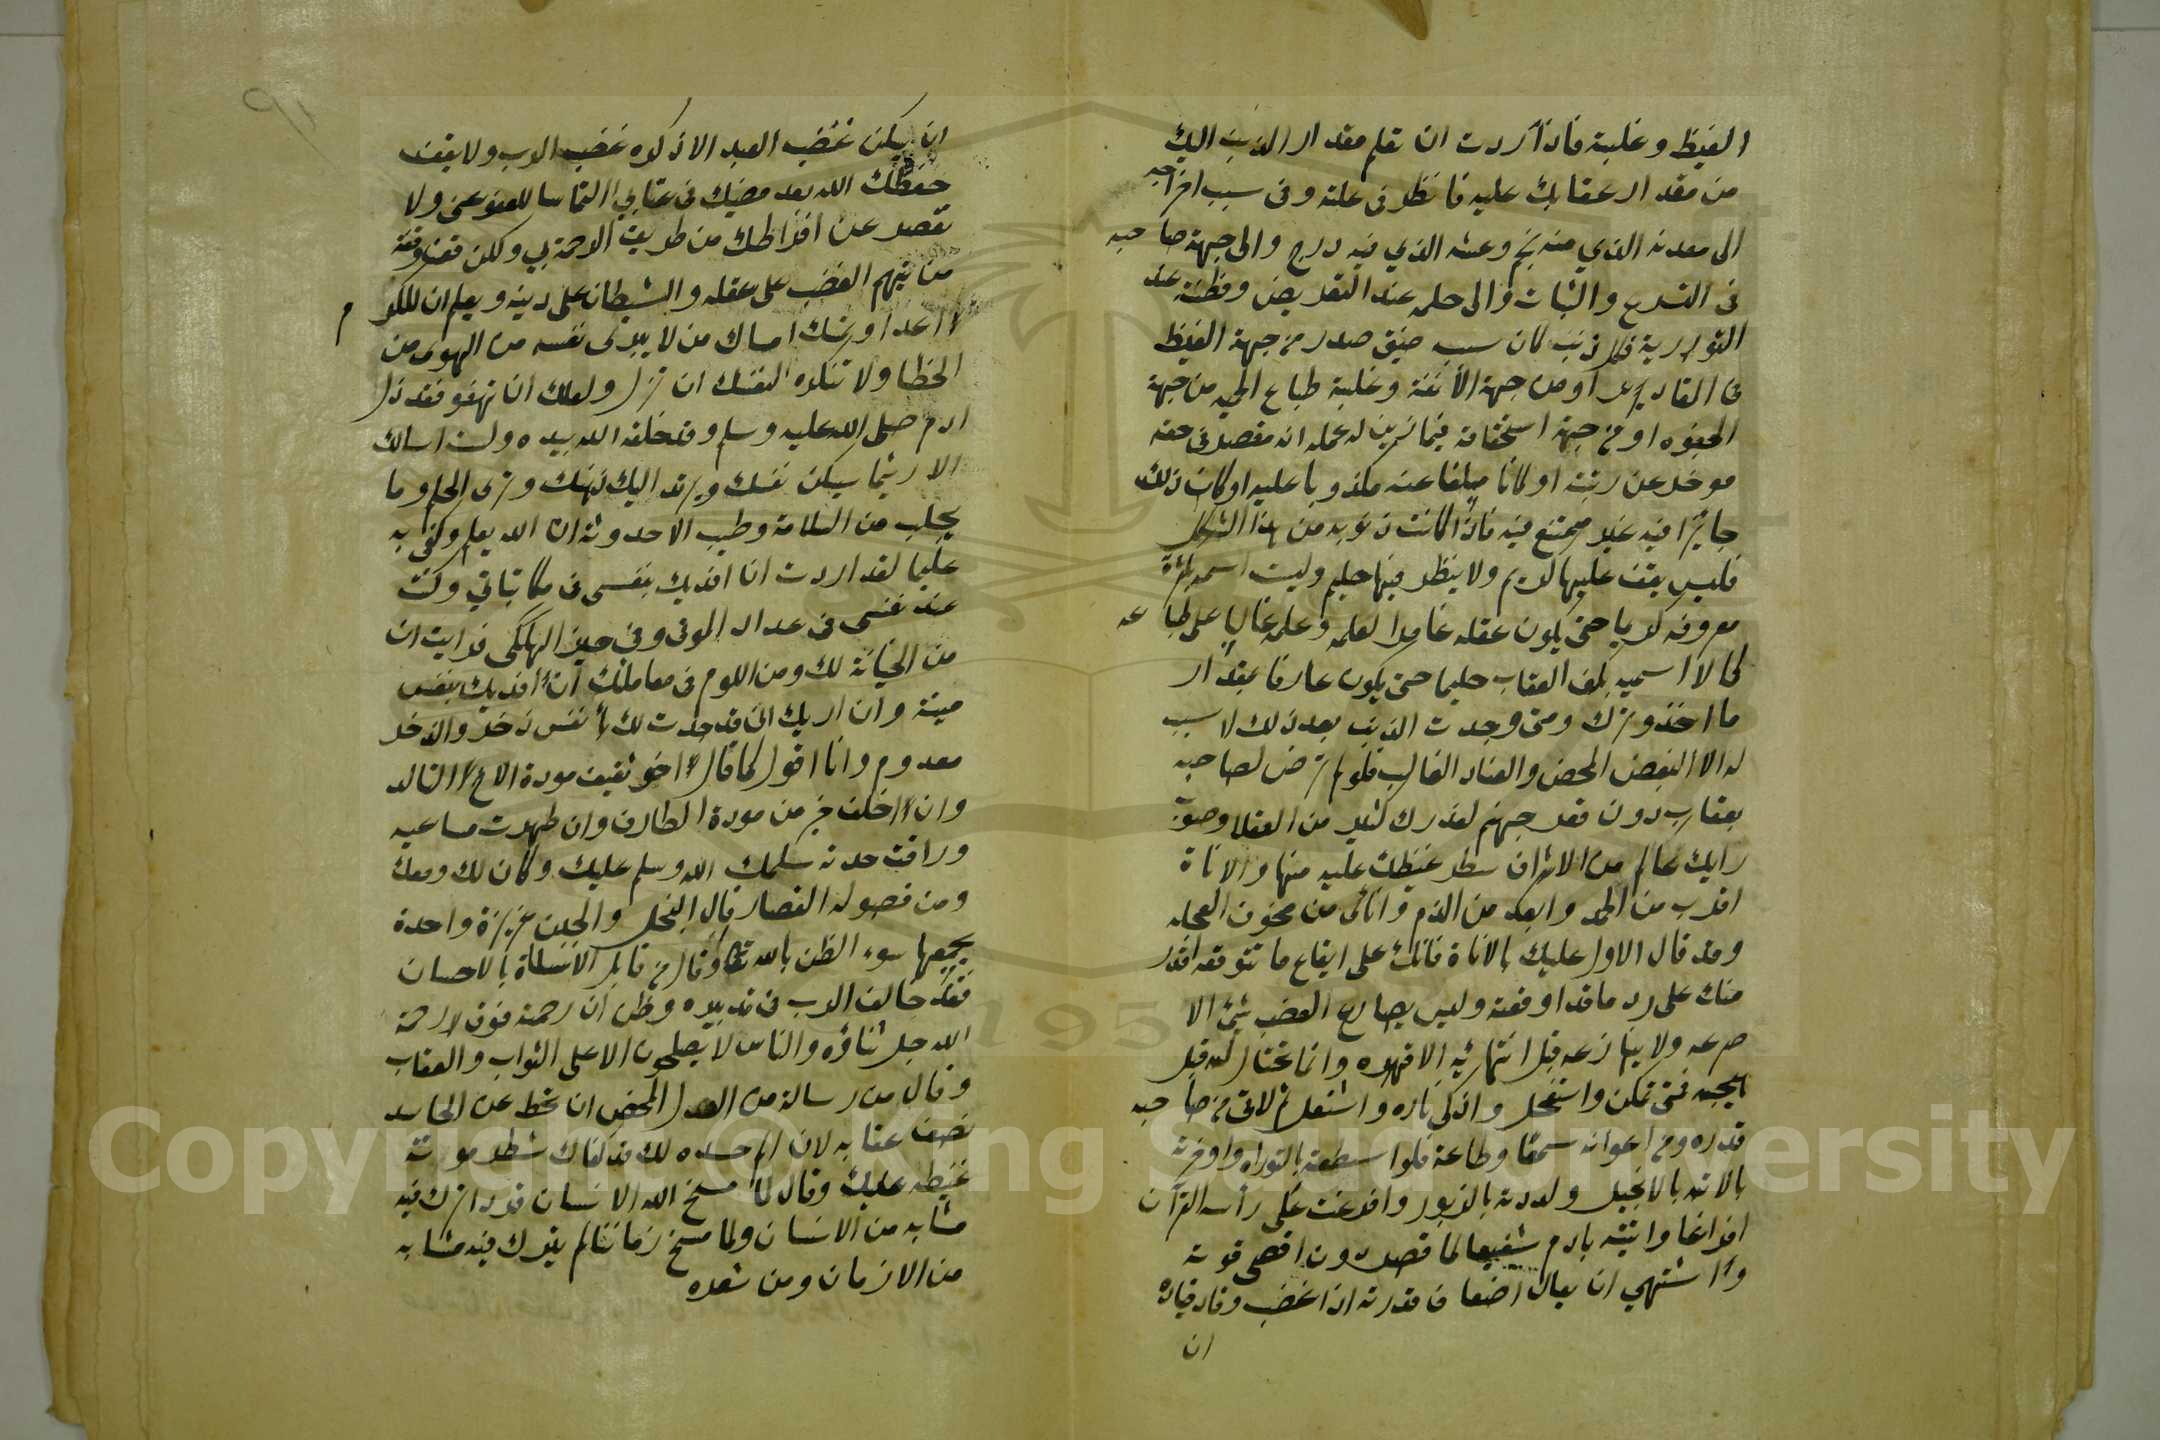 الغيظ وغلبة فاذا أردت ان تعلم مقدار الذنب اليك
من مقدار عقابك عليه فانظر في علته وفي سبب اخراجه
الى معدنه الذي منه نجم وعشه الذي فيه درج والى جهة صاحبه
في التسرع والثبات والى حلمه عند التعريض وفطنته عند
التورية فكل ذنب كان سببه ضيق صدر من جهة الغيظ
في المقادير او من جهة الأنفة وغلبة طباع الحمية من جهة
الجفوة او من جهة استحقاقه فيما زين له عمله انه مقصر في حقه
موخر عن رتبته او كان مبلغا عنه مكذوبا عليه او كان ذلك
جايزا فيه غير ممتنع فيه فاذا كانت ذنوبه من هذا الشكل
فليس يقف عليها كريم ولا ينظر فيها حليم ولست اسميه بكثرة
معروفه كريما حتى يكون عقله غامرا لعلمه وعلمه غالبا على طباعه
كما لا اسميه بكف العقاب حليما حتى يكون عارفا بمقدار
ما اخذ وترك ومتى وجدت الذنب بعد ذلك لا سبب
له الا البغض المحض والعناد الغالب فلو لم ترض لصاحبه
بعقاب دون قعر جهنم لعذرك كثير من العقلا وصوب
رايك عالم من الاشراف سطر غيظك عليه منها والاناة
اقرب من الحمد وابعد من الذم وانأى من خوف العجله
وقد قال الاول عليك بالاناة فانك على ايقاع ما تتوقعه اقدر
منك على رد ما قد اوقعته وليس يصارع الغضب شيئ الا
صرعه ولا ينازعه قبل انتهائه الا قهره وانما يحتال له قبل
هيجه فمتى تمكن واستفحل واذكى ناره واشتعل ثم لاقى من صاحبه
قدرة ومن اعوانه سمعا وطاعة فلو اسطعته بالتوراة واوجرته
بالاته بالانجيل ولددته بالزبور وافرغت على رأسه القرآن
افراغا واتيته بادم شفيعا لما قصر دون اقصى قوته
وا اشتهى ان يعان اضعاف قدرته اذا غضب وقاد قياده
ان
ان يكن غضب العبد الا ذكره غضب الرب ولا يقف
حفظك الله بعد مضيك في عتابي التماسا للعفو عني ولا
تقصر عن افراطك من طريق الرحمة بي ولكن قف وقفة
من يتهم الغضب على عقله والشيطان على دينه ويعلم ان للكرم
اعدا ويمسك امساك من لا يبرى نفسه من الهوى من
الخطا ولا تنكره لنفسك ان تزل ولعقلك ان تهفو فقد زل
ادم صلى الله عليه وسلم وقد خلقه الله بيده ولست اسالك
الا ريثما يسكن نفسك ويرتد اليك ذهنك وترى الحلم وما
يجلب من السلامة وطيب الاحدوثة ان الله يعلم وكفى به
عليما لقد اردت ان افديك بنفسي في مكاتباتي وكنت
عند نفسي في عداد الموتى وفي حيز الهلكى فرايت ان
من الخيانة لك ومن اللوم في معاملتك ان افديك بنفس
ميتة وان اريك اني قد جدت لك بأنفس ذخر والذخر
معدوم وانا اقول كما قال اخو ثقيف مودة الاخ التالد
وان اخلق خير من مودة الطارف وان ظهرت مساعيه
وراقت جدته سلمك الله وسلم عليك وكان لك ومعك
ومن فصوله القصار قال البخل والجبن غريزة واحدة
يجمعها سوء الظن بالله تعالى وقال من قابل الاساة بالاحسان
فقد خالف الرب في تدبيره وظن ان رحمته فوق رحمة
الله جل ثناؤه والناس لا يصلحون الا على الثواب والعقاب
وقال من رسالة من العدل المحض ان تحط عن الحاسد
نصف عقابه لان الم حسده لك قد كفاك شطر موونة
غيظه عليك وقال لما مسخ الله الانسان قردا ترك فيه
مشابه من الانسان ولما مسخ زماننا لم يترك فيه مشابه
من الازمان ومن شعره
Copyright © King Saud University
195